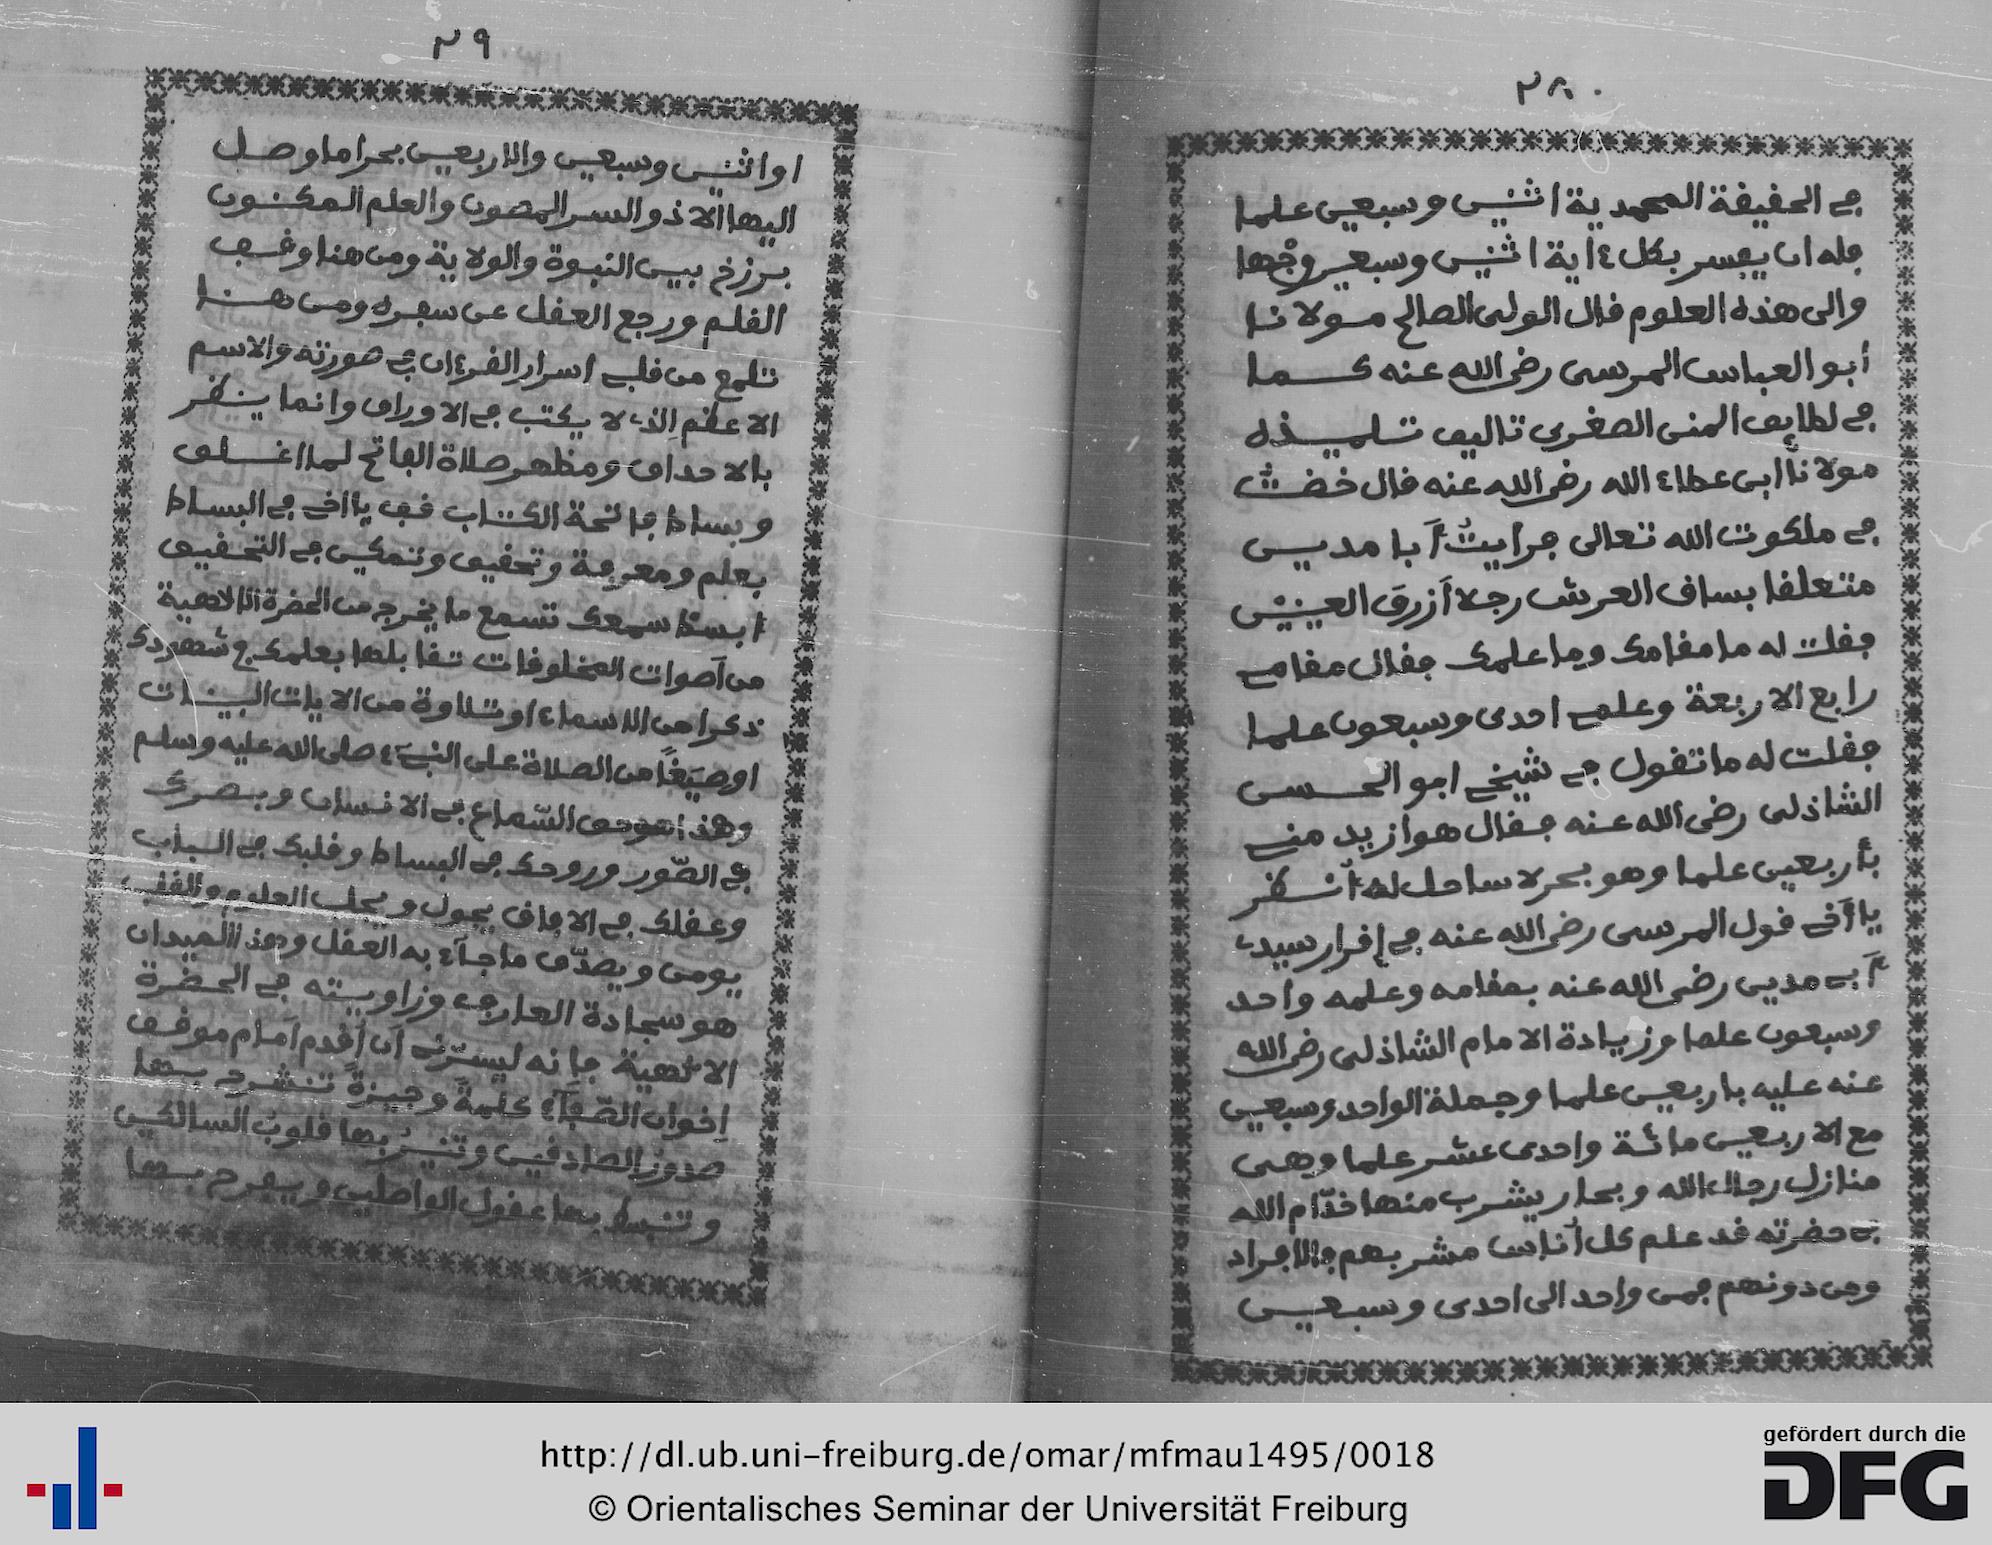 ٢٨
في الحقيقة المحمدية اثنين وسبعين علما
فله ان يفسر بكل ءاية اثنين وسبعين وجها
والى هذه العلوم قال الولى الصالح مولانا
أبو العباس المرسى رضى الله عنه كما
في لطايف المنن الصغرى تاليف تلميذه
مولانا ابن عطاء الله رضى الله عنه قال خضت
في ملكوت الله تعالى فرايت أبا مدين
متعلقا بساق العرش رجلا أزرق العينين
فقلت له ما مقامك وما علمك فقال مقامي
رابع الاربعة وعلمي احدى وسبعون علما
فقلت له ما تقول في شيخي ابو الحسن
الشاذلى رضى الله عنه فقال هو ازيد مني
بأربعين علما وهو بحر لا ساحل له أنظر
يا أخي قول المرسى رضى الله عنه في إقرار سيدي
أبي مدين رضى الله عنه بمقامه وعلمه واحد
وسبعون علما وزيادة الامام الشاذلى رضى الله
عنه عليه باربعين علما وجملة الواحد وسبعين
مع الاربعين مائة واحدى عشر علما وهى
منازل رجال الله وبحار يشرب منها خدّام الله
في حضرته قد علم كل أناس مشربهم فالافراد
ومن دونهم فمن واحد الى احدى وسبعين
٢٩
او اثنين وسبعين والاربعين بحرا ما وصل
اليها الا ذو السر المصون والعلم المكنون
برزخ بين النبوة والولاية ومن هنا وقف
القلم ورجع العقل عن سفره ومن هنا
تلمح من قلب اسرار القرءان في صورته والاسم
الاعظم الذي لا يكتب في الاوراق وانما ينظر
بالاحداق ومظهر صلاة الفاتح لما اغلق
وبساط فاتحة الكتاب قف يا اخي في البساط
بعلم ومعرفة وتحقيق وتمكين في التحقيق
أبسط سمعك تسمع ما يخرج من الحضرة الالاهية
من أصوات المخلوقات تقابلها بعلمك في شهودك
ذكرا من الاسماء او تلاوة من الايات البينات
او صيغًا من الصلاة على النبيء صلى الله عليه وسلم
وهذا هو حق السّماع في الانسان وبصرك
في الصّور وروحك في البساط وقلبك في الباب
وعقلك في الافاق يجول ويجلب العلوم والقلب
يومن ويصدّق ما جاء به العقل وهذا الميدان
هو سجادة العارف وزاويته في الحضرة
الالهية فانه ليسرّني أن أقدم أمام موقف
إخوان الصّفآء كلمةً وجيزةً تنشرح بها
صدور الصادقين وتنيرُ بها قلوب السالكين
وتنبسط بها عقول الواصلين ويفرح بها
http://dl.ub.uni-freiburg.de/omar/mfmau1495/0018
© Orientalisches Seminar der Universität Freiburg
gefördert durch die
DFG